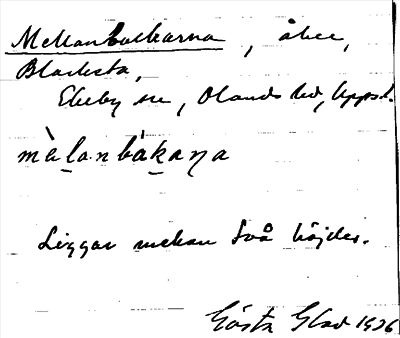 Mellanbackarna, åker,
Blacksta,
Ekeby sn, Olands hd, Uppsl.
mèlanbàkaṇa
Ligger mellan två höjder.
Gösta Glad 1926